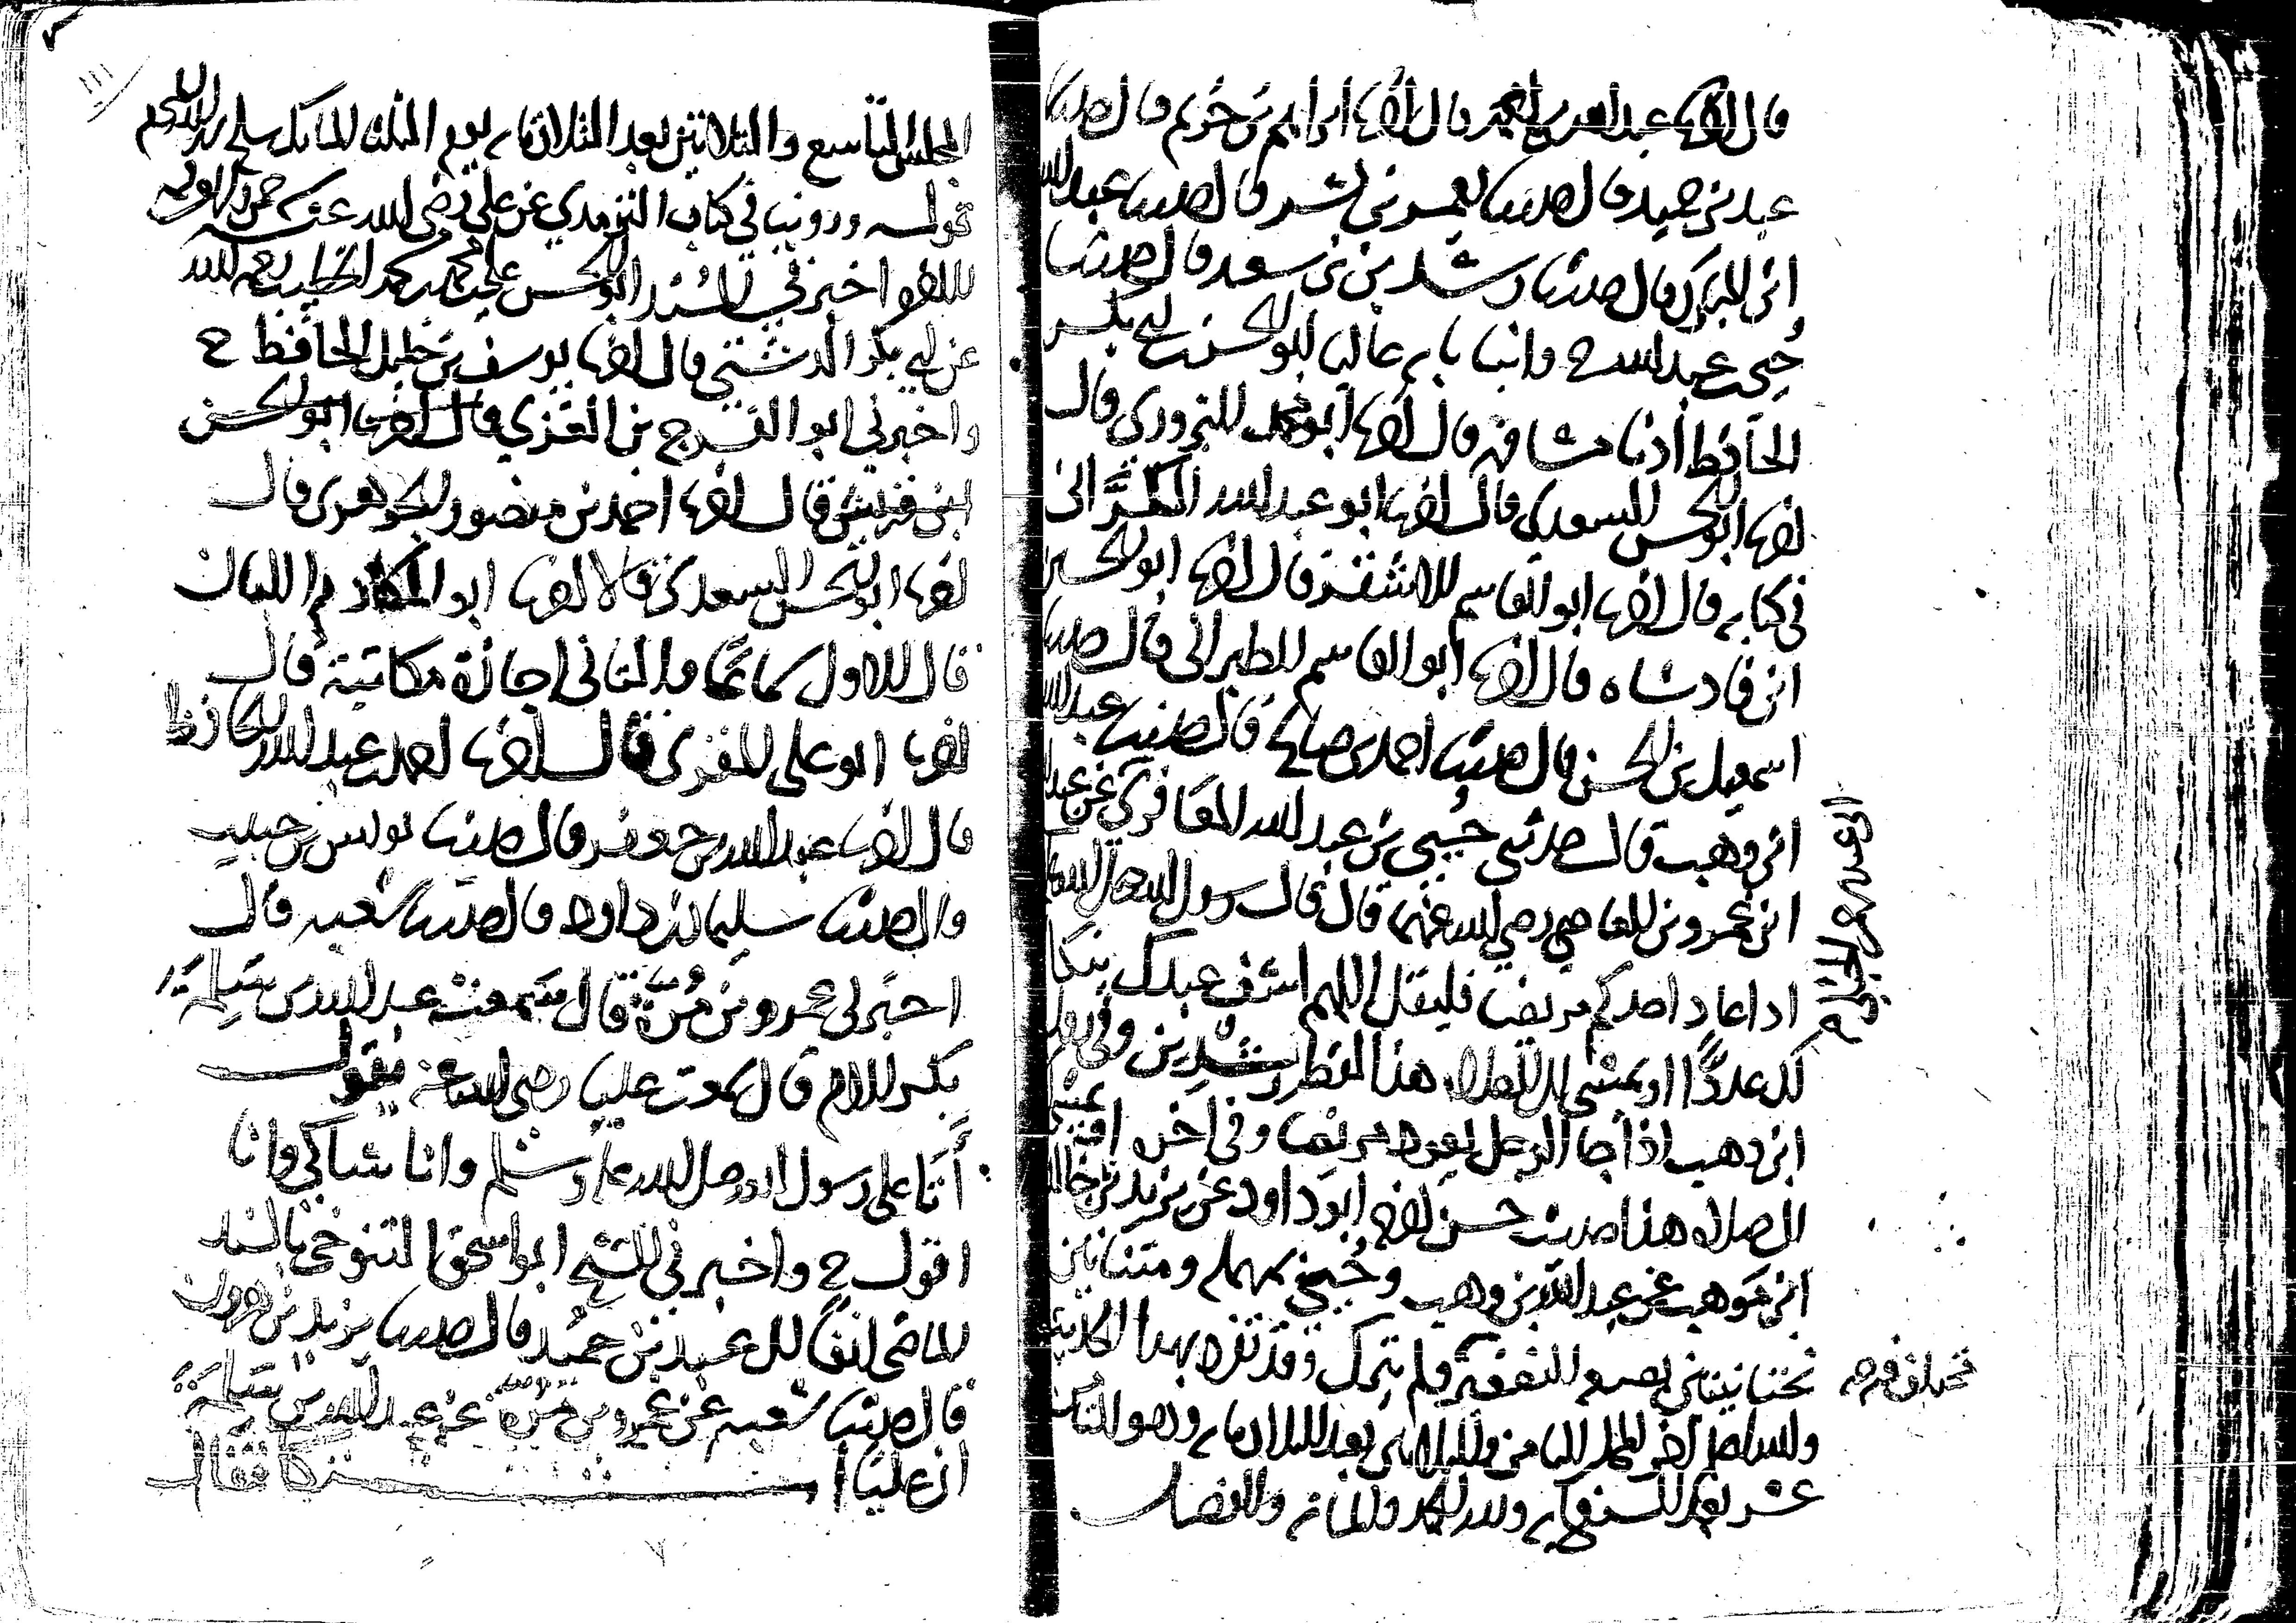 قال اخبرنا عبد الله بن قال اخبرنا ابراهيم بن خزيم قال حدثنا
عبد بن حميد قال حدثنا يعمر بن بشر قال حدثنا عبد الله
ابن المبارك قال حدثنا رشدين بن سعد قال حدثنا
حيي بن عبد الله ح وانبا به عاليا ابو الحسن بن ابي بكر
الحافظ اذنا مشافهة قال اخبرنا ابو محمد البزوري قال
اخبرنا ابو الحسن السعدي قال اخبرنا ابو عبد الله الكراني
في كتابه قال اخبرنا ابو القاسم الاشقر قال اخبرنا ابو الحسين
ابن فادشاه قال اخبرنا ابو القاسم الطبراني قال حدثنا
اسمعيل بن الحسن قال حدثنا احمد بن صالح قال حدثنا عبد الله
ابن وهب قال حدثني حيي بن عبد الله المعافري عن عبد الله
ابن عمرو بن العاصي رضي الله عنهما قال قال رسول الله صلى الله عليه
اذا عاد احدكم مريضا فليقل اللهم اشف عبدك ينكا
لك عدوا او يمشي الى الصلاة هذا لفظ رشدين وفي رواية
ابن وهب اذا جا الرجل يعود مريضا وفي اخره او يمشي
الى الصلاة هذا حديث حسن اخرجه ابو داود عن يزيد بن خالد
ابن موهب عن عبد الله بن وهب وحيي بمهملة ومثناتين
تحتانيتين بصيغة التصغير فلم يترك وقد تفرد بهذا الحديث
والله اعلم اخر المجلس الثامن والثلاثين بعد الثلاثمايه وهو الثامن
عشر بعد السبعمايه ولله الحمد والمانه والفضل
المجلس التاسع والثلاثين بعد الثلاثمايه يوم الثلاثا
قوله وروينا في كتاب الترمذي عن علي رضي الله عنه
اخبرني المسند ابو الحسن علي بن محمد بن محمد الخطيب رحمه الله
عن ابي بكر الدشتي قال اخبرنا يوسف بن خليل الحافظ ح
واخبرني ابو الفرج بن الغزي قال اخبرنا ابو الحسن
ابن قريش قال اخبرنا احمد بن منصور الجوهري قال
اخبرنا ابو الحسن السعدي قالا اخبرنا ابو المكارم اللبان
قال الاول سماعا والثاني اجازة مكاتبة قال
اخبرنا ابو علي المقرئ قال اخبرنا احمد بن عبد الله الحافظ
قال اخبرنا عبد الله بن جعفر قال حدثنا يونس بن حبيب
قال حدثنا سليمان بن داود قال حدثنا شعبه قال
اخبرني عمرو بن مرة قال سمعت عبد الله بن سلمة
بكسر اللام قال سمعت عليا رضي الله عنه يقول
أتا علي رسول الله صلى الله عليه وسلم وانا شاكي وانا
اقول ح واخبرني الشيخ ابو اسحق التنوخي بالسند
الماضي انفا الى عبد بن حميد قال حدثنا يزيد بن هرون
قال حدثنا شعبه عن عمرو بن مرة عن عبد الله بن سلمة
ان عليا اشتكا فقال